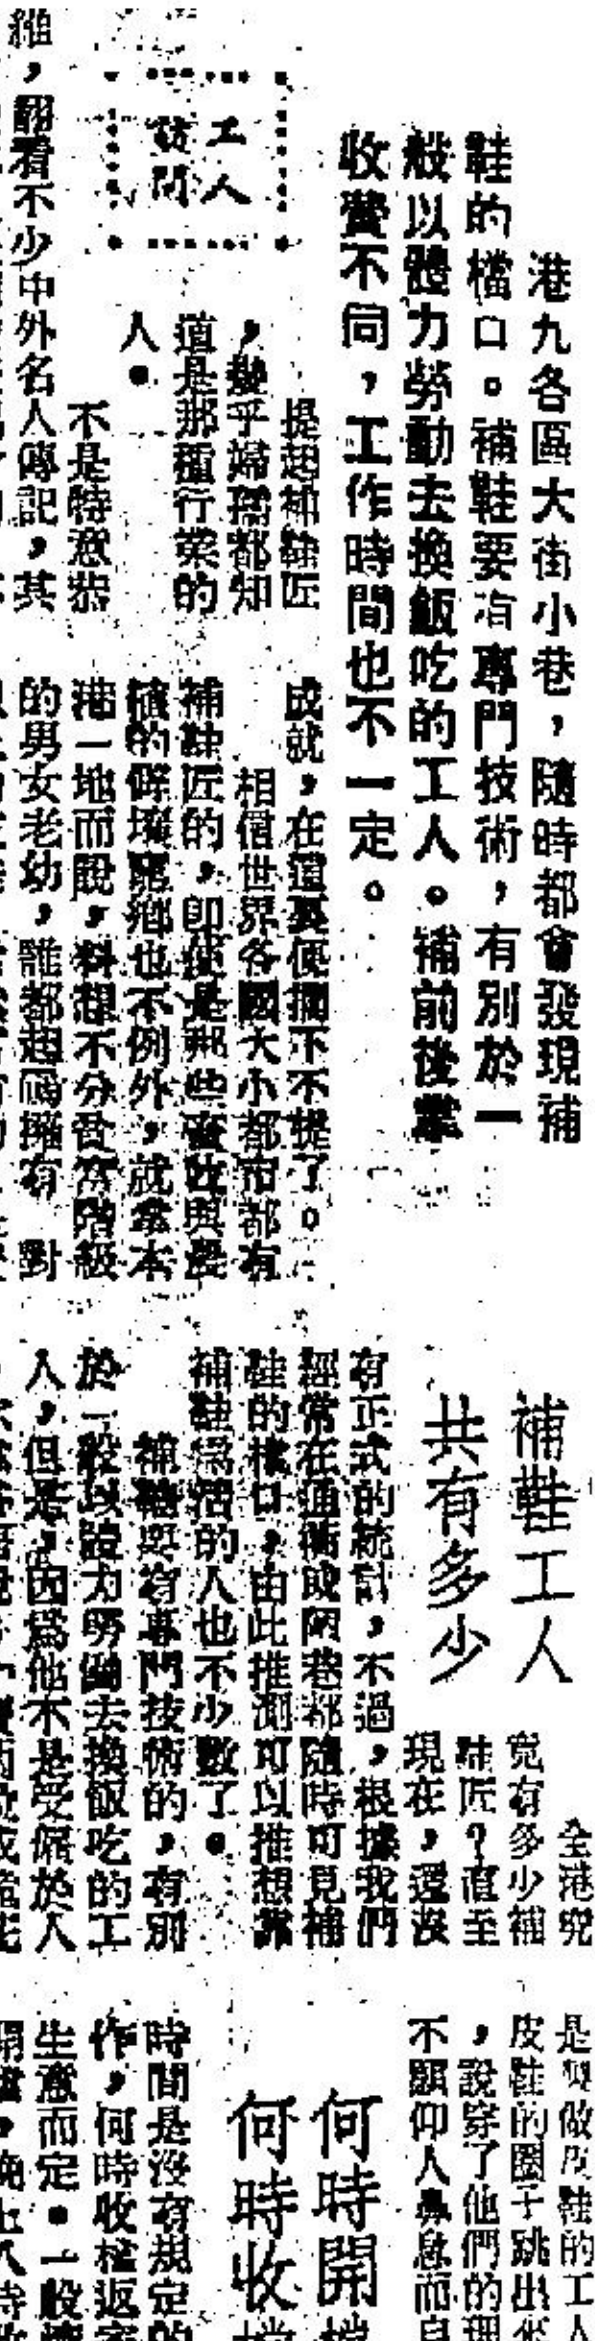 港九各區大街小巷，隨時都會發現補
鞋的檔口。補鞋要有專門技術，有別於一
般以體力勞動去換飯吃的工人。補前後掌
收費不同，工作時間也不一定。
工人
訪問
提起補鞋匠
，幾乎婦孺都知
道是那種行業的
人。
不是特意恭
維，翻看不少中外名人傳記，其
成就，在這裏便擱下不提了。
相信世界各國大小都市都有
補鞋匠的，即使是那些
的僻壤窮鄉也不例外，就拿本
港一地而說，料想不分貧富階級
的男女老幼，誰都起碼擁有 對
補鞋工人
共有多少
全港究
竟有多少補
鞋匠？直至
現在，還沒
有正式的統計，不過，根據我們
經常在通衢或陋巷都隨時可見補
鞋的檔口，由此推測可以推想靠
補鞋為活的人也不少數了。
補鞋要有專門技術的，有別
於一般以體力勞動去換飯吃的工
人，但是，因為他不是受僱於人
是要做皮鞋的工人
皮鞋的圈子跳出來
，說穿了他們的理
不願仰人鼻息而自
何時開檔
何時收檔
時間是沒有規定的
作，何時收檔返家
生意而定。一般